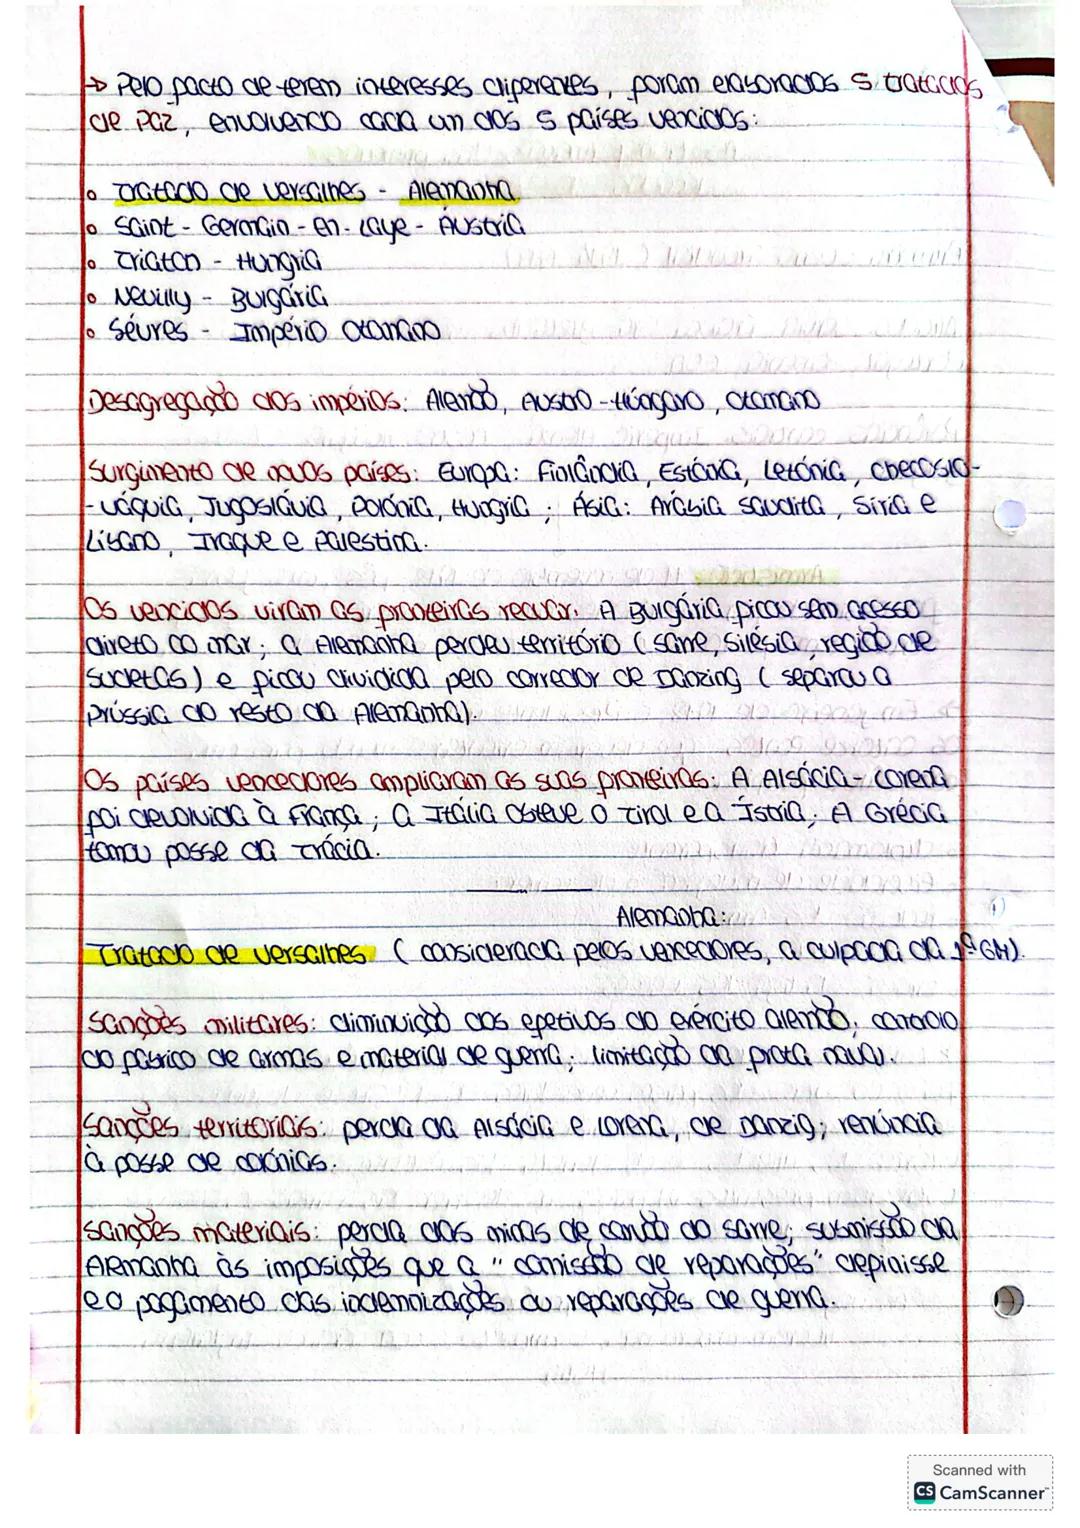 → Pelo facto de terem interesses diferentes, foram elaborados 5 tratados
de Paz, envolvendo cada um dos 5 países vencidos:
• Tratado de Versalhes - Alemanha
• Saint-Germain-en-Laye - Áustria
• Triaton - Hungria
• Neuilly - Bulgária
• Sévres - Império Otomano
Desagregação dos impérios: Alemão, Austro-Húngaro, Otomano
Surgimento de novos países: Europa: Finlândia, Estónia, Letónia, Checoslo-
-váquia, Jugoslávia, Polónia, Hungria; Ásia: Arábia Saudita, Síria e
Líbano, Iraque e Palestina.
Os vencidos viram as fronteiras recuar: A Bulgária ficou sem acesso
direto ao mar; a Alemanha perdeu território (Sarre, Silésia, região de
Sudetas) e ficou dividida pelo corredor de Danzing (separou a
Prússia do resto da Alemanha).
Os países vencedores ampliaram as suas fronteiras: A Alsácia-Lorena
foi devolvida à França; a Itália obteve o Tirol e a Ístria; A Grécia
tomou posse da Trácia.
Alemanha:
Tratado de Versalhes (considerada pelos vencedores, a culpada da 1ª GM).
Sanções militares: diminuição dos efetivos do exército alemão; controlo
do fabrico de armas e material de guerra; limitação da frota naval.
Sanções territoriais: perda da Alsácia e Lorena, de Danzig; renúncia
à posse de colónias.
Sanções materiais: perda das minas de carvão do Sarre; submissão da
Alemanha às imposições que a "comissão de reparações" definisse
e o pagamento das indemnizações ou reparações de guerra.
Scanned with
CS CamScanner